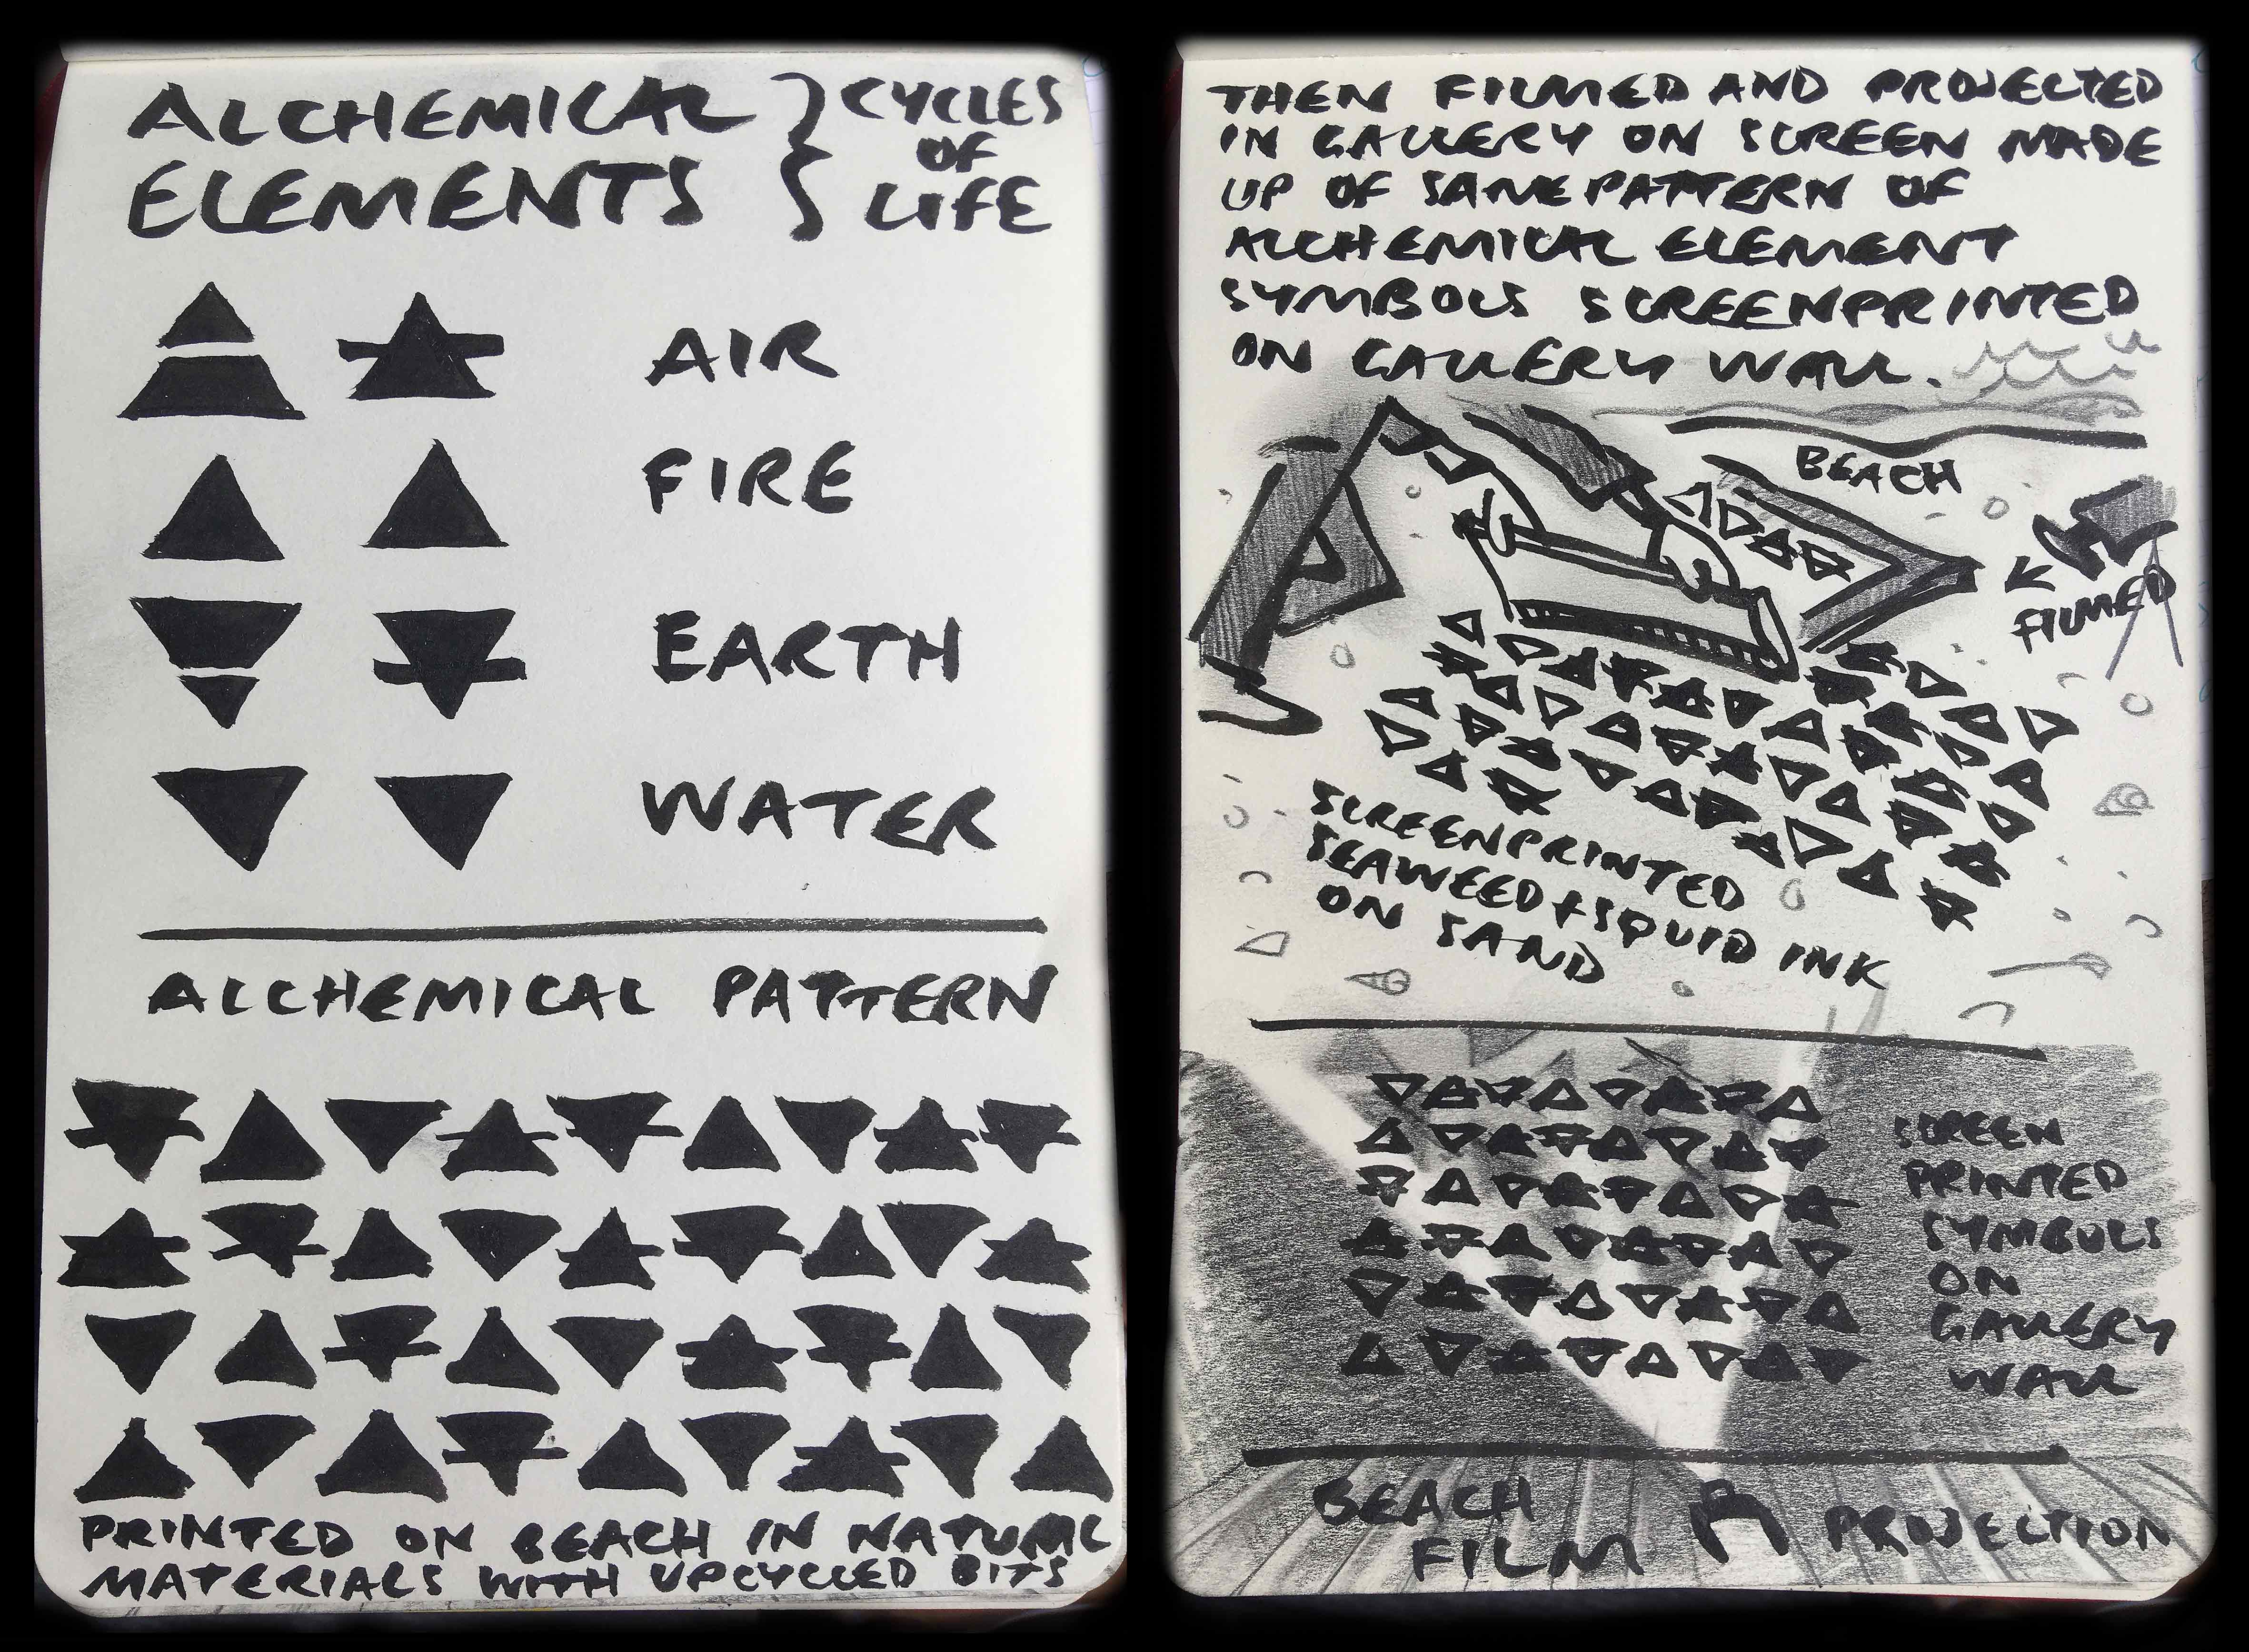 ALCHEMICAL } CYCLES
OF
ELEMENTS } LIFE
AIR
FIRE
EARTH
WATER
ALCHEMICAL PATTERN
PRINTED ON BEACH IN NATURAL
MATERIALS WITH UPCYCLED BITS
THEN FILMED AND PROJECTED
IN GALLERY ON SCREEN MADE
UP OF SAME PATTERN OF
ALCHEMICAL ELEMENT
SYMBOLS SCREENPRINTED
ON GALLERY WALL.
BEACH
FILMED
SCREENPRINTED
SEAWEED + SQUID INK
ON SAND
SCREEN
PRINTED
SYMBOLS
ON
GALLERY
WALL
BEACH
FILM
PROJECTION